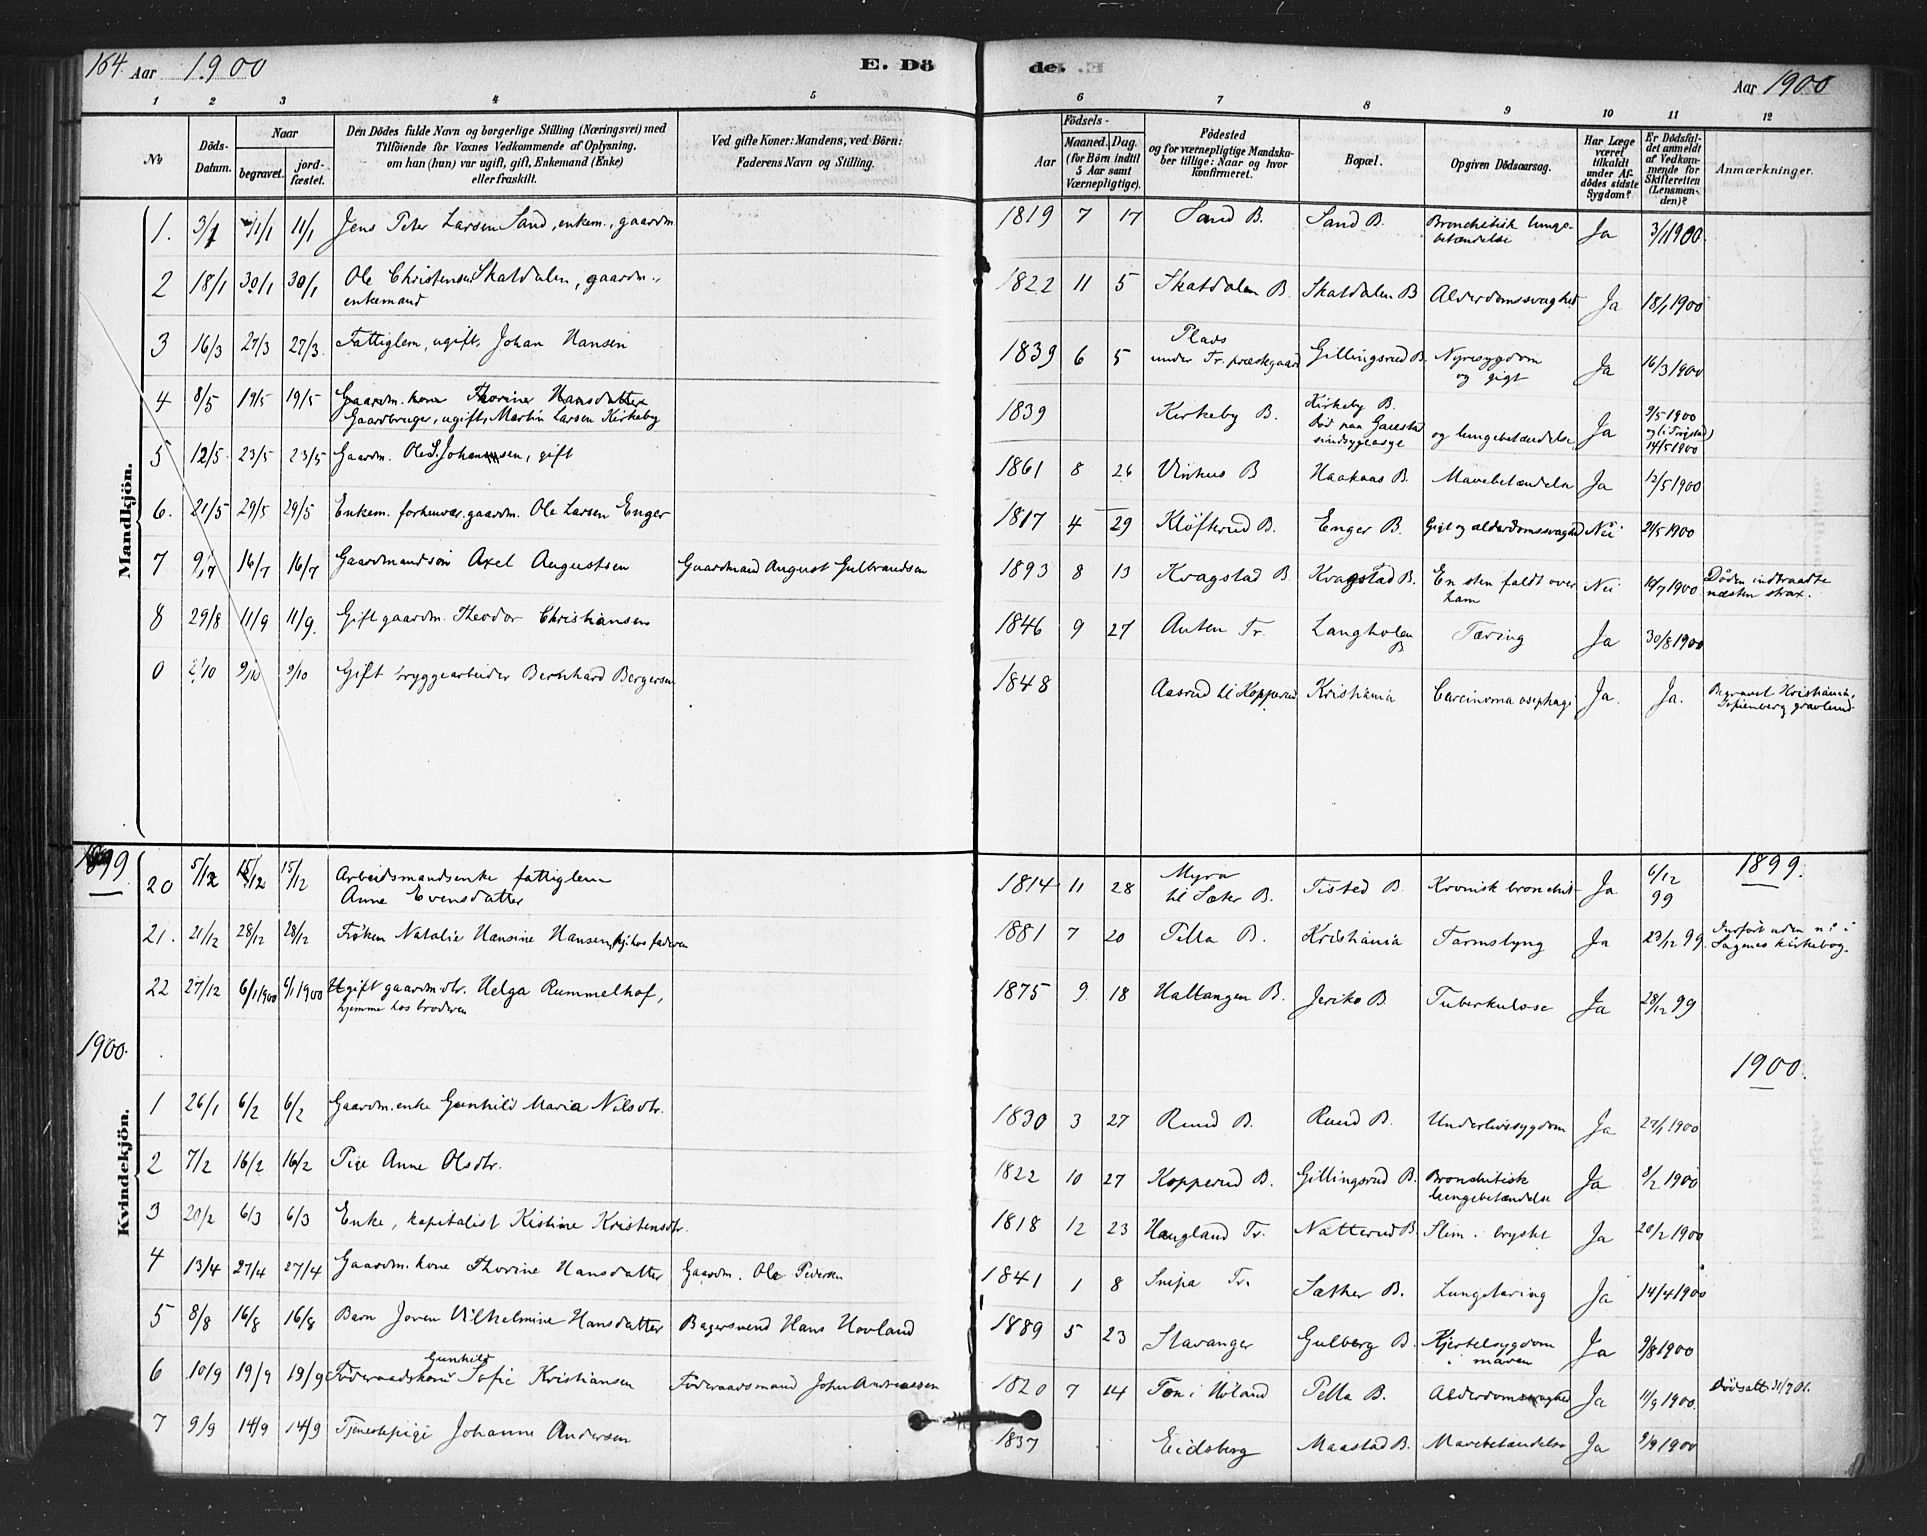 164. Aar 1900
E. Dö
de.
Aar 1900
1 2 3 4 5 6 7 8 9 10 11 12
No
Döds-Datum.
Naar
begravet.
jord-fæstet.
Den Dödes fulde Navn og borgerlige Stilling (Næringsvei) med
Tilföiende for Voxnes Vedkommende af Oplysning,
om han (hun) var ugift, gift, Enkemand (Enke)
eller fraskilt.
Ved gifte Koner: Mandens, ved Börn:
Faderens Navn og Stilling.
Födsels-
Aar
Maaned. Dag.
(for Börn indtil
5 Aar samt
Værnepligtige).
Födested
og for værnepligtige Mandska-
ber tillige: Naar og hvor
konfirmeret.
Bopæl.
Opgiven Dödsaarsag.
Har Læge
været
tilkaldt
under Af-
dödes sidste
Sygdom?
Er Dödsfal-
det anmeldt
af Vedkom-
mende for
Skifteretten
(Lensman-
den)?
Anmærkninger.
Mandkjön.
1. 3/1 11/1 11/1 Jens Peter Larsen Sand, enkem., gaardm. 1819 7 17 Sand B. Sand B. Bronchitisk lunge-
betændelse Ja 3/1 1900
2 18/1 30/1 30/1 Ole Christensen Skatdalen, gaardm.,
enkemand 1822 11 5 Skatdalen B. Skatdalen B Alderdomssvaghed Ja 18/1 1900
3 16/3 27/3 27/3 Fattiglem, ugift, Johan Hansen 1839 6 5 Plads
under Tr. præstgaard Gillingsrud B. Nyresygdom
og gigt Ja 16/3 1900
4 8/5 19/5 19/5 Gaardm. kone Thorine Hansdatter
Gaardbruger, ugift, Martin Larsen Kirkeby 1839 Kirkeby B. Kirkeby B.
død paa Gaustad
sindsygeasyl og lungebetændelse Ja 9/5 1900
og i Trøgstad
14/5 1900
5 12/5 23/5 23/5 Gaardm. Ole S. Johansen, gift 1861 8 26 Vinhus B Haakaas B. Mavebetændelse Ja 12/5 1900
6. 21/5 29/5 29/5 Enkem. forhenvær. gaardm. Ole Larsen Enger 1817 4 29 Kløfterud B. Enger B. Gigt og alderdomssvaghed Nei 21/5 1900
7 9/7 16/7 16/7 Gaardmandssøn Axel Augustsen Gaardmand August Gulbrandsen 1893 8 13 Kragstad B. Kragstad B. En sten faldt over
ham Nei 10/7 1900 Døden indtraadte
næsten strax.
8 29/8 11/9 11/9. Gift gaardm. Theodor Christiansen 1846 9 27 Auten Tr. Langholen
B Tæring Ja 30/8 1900
0 2/10 9/10 9/10 Gift bryggearbeider Bernhard Bergersen 1848 Aasrud til Kopperud Kristiania Carcinoma oesphagi Ja. Ja. Begravet Kristiania,
Sofienberg gravlund.
1899
1899.
20 5/12 15/12 15/12 Arbeidsmandsenke fattiglem
Anne Evensdatter 1814 11 28 Myra
til Sæter B. Tisted B. Kronisk bronchit Ja 6/12
99
21. 21/12 28/12 28/12 Frøken Natalie Hansine Hansen, hj. hos faderen 1881 7 20 Tella B. Kristiania Tarmslyng Ja 23/12 99 Indført uden n: i
Sagenes kirkebog.
22 27/12 6/1 1900 6/1 1900 Ugift gaardm.dtr. Helga Rummelhof,
hjemme hos broderen 1875 9 18 Haltangen B. Jeriko B Tuberkulose Ja 28/12 99
1900.
1900.
Kvindekjön.
1 26/1 6/2 6/2 Gaardm. enke Gunhild Maria Nilsdtr. 1830 3 27 Ruud B. Ruud B. Underlivssygdom Ja 27/1 1900
2 7/2 16/2 16/2 Pige Anne Olsdtr. 1822 10 27 Kopperud B. Gillingsrud B. Bronchitisk
lungebetændelse Ja 8/2 1900
3 20/2 6/3 6/3 Enke, kapitalist Kistine Kristensdtr. 1818 12 23 Haugland Tr. Natterud B. Slim i brystet Ja 20/2 1900
4 13/4 27/4 27/4 Gaardm. kone Thorine Hansdatter Gaardm. Ole Pedersen 1841 1 8 Snipa Tr. Sæther B. Lungetæring Ja 14/4 1900
5 8/8 16/8 16/8 Barn Joren Vilhelmine Hansdatter Bagersvend Hans Hovland 1889 5 23 Stavanger Gulberg B. Kjertelsygdom
i maven Ja 9/8 1900
6 10/9 19/9 19/9 Føderaadskone Gunhild Sofie Kristiansen Føderaadsmand John Andreassen 1820 7 14 Ton i Høland Tella B. Alderdomssvaghed Ja 11/9 1900. Dødsatt. 31/7 01.
7 9/9 14/9 14/9 Tjenestepige Johanne Andersen 1837 Eidsberg Maastad B. Mavebetændelse Ja 9/9 1900